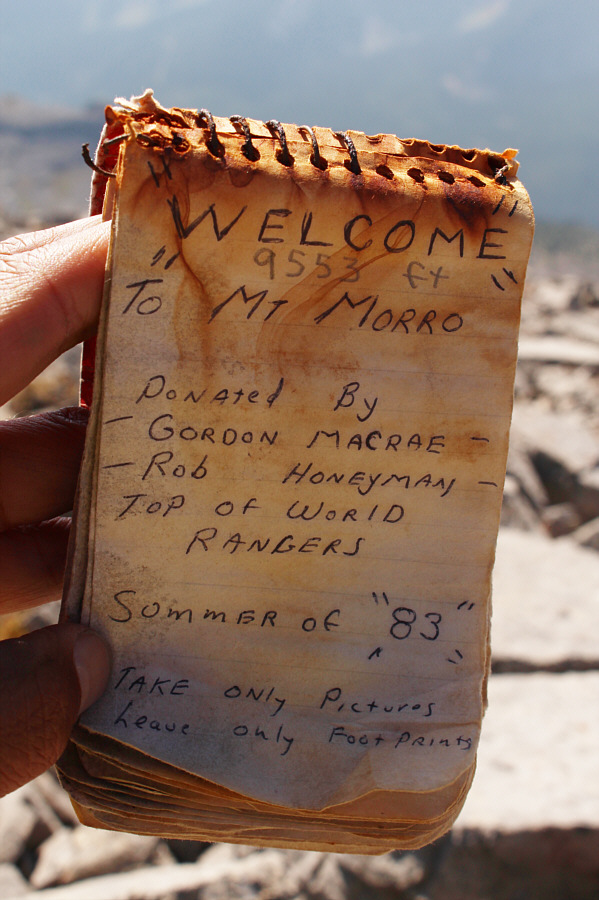 "WELCOME"
9553 ft
"To Mt Morro"
Donated By
- Gordon MacRae -
- Rob Honeyman -
Top of World
Rangers
Summer of "83"
Take only Pictures
Leave only Foot Prints